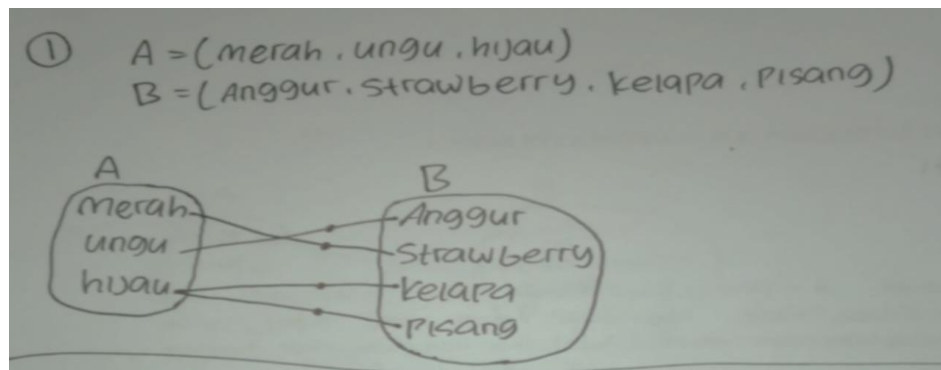 ① A = (merah . ungu . hijau)
B = (Anggur . Strawberry . kelapa . Pisang)
A
B
merah
ungu
hijau
Anggur
Strawberry
kelapa
Pisang